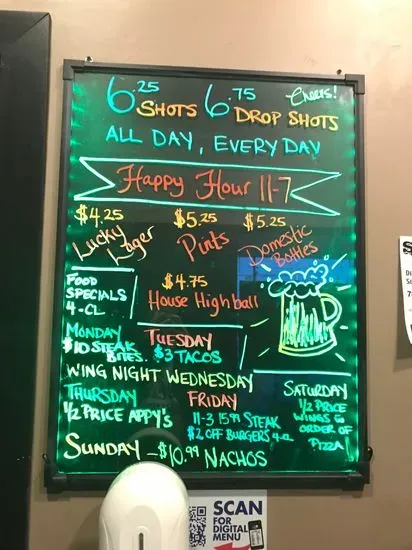 6.25 SHOTS 6.75 DROP SHOTS
Cheers!
ALL DAY, EVERY DAY
Happy Hour 11-7
$4.25 Lucky Lager
$5.25 Pints
$5.25 Domestic Bottles
$4.75
House Highball
FOOD
SPECIALS
4-CL
MONDAY
$10 STEAK
BITES.
TUESDAY
$3 TACOS
WING NIGHT WEDNESDAY
THURSDAY
1/2 PRICE APPY'S
FRIDAY
11-3 15.99 STEAK
$2 OFF BURGERS 4-CL
SATURDAY
1/2 PRICE
WINGS &
ORDER OF
PIZZA
SUNDAY - $10.99 NACHOS
SCAN
FOR
DIGITAL
MENU